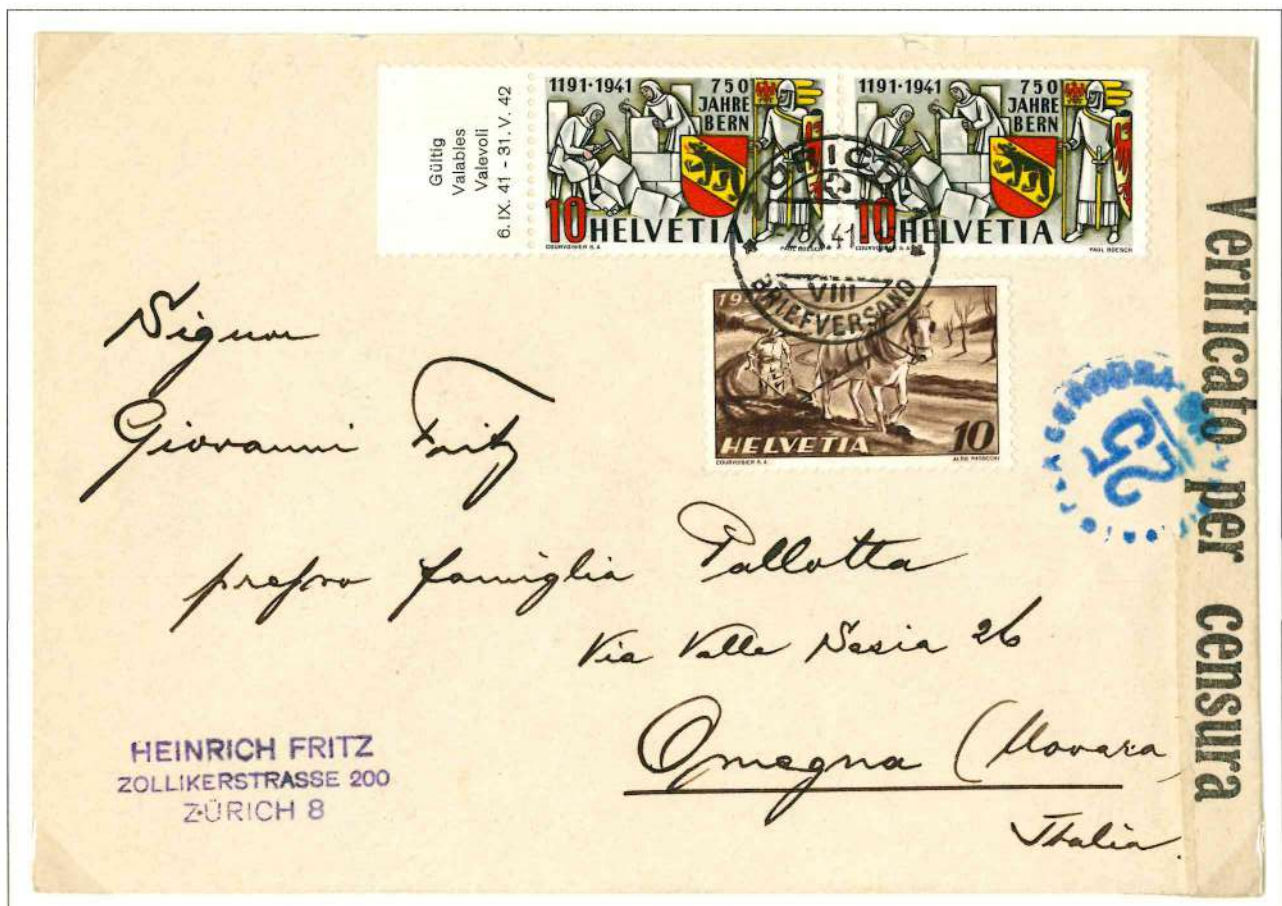 Gültig
Valables
Valevoli
6. IX. 41 - 31. V. 42
1191·1941 750 JAHRE BERN
10 HELVETIA
COURVOISIER S.A. PAUL BOESCH
1191·1941 750 JAHRE BERN
10 HELVETIA
COURVOISIER S.A. PAUL BOESCH
41
VIII
BRIEFVERSAND
HELVETIA 10
COURVOISIER S.A.
Signor
Giovanni Fritz
presso famiglia Pallotta
Via Valle Sesia 26
Omegna (Novara
Italia.
HEINRICH FRITZ
ZOLLIKERSTRASSE 200
ZÜRICH 8
25
Verificato per censura